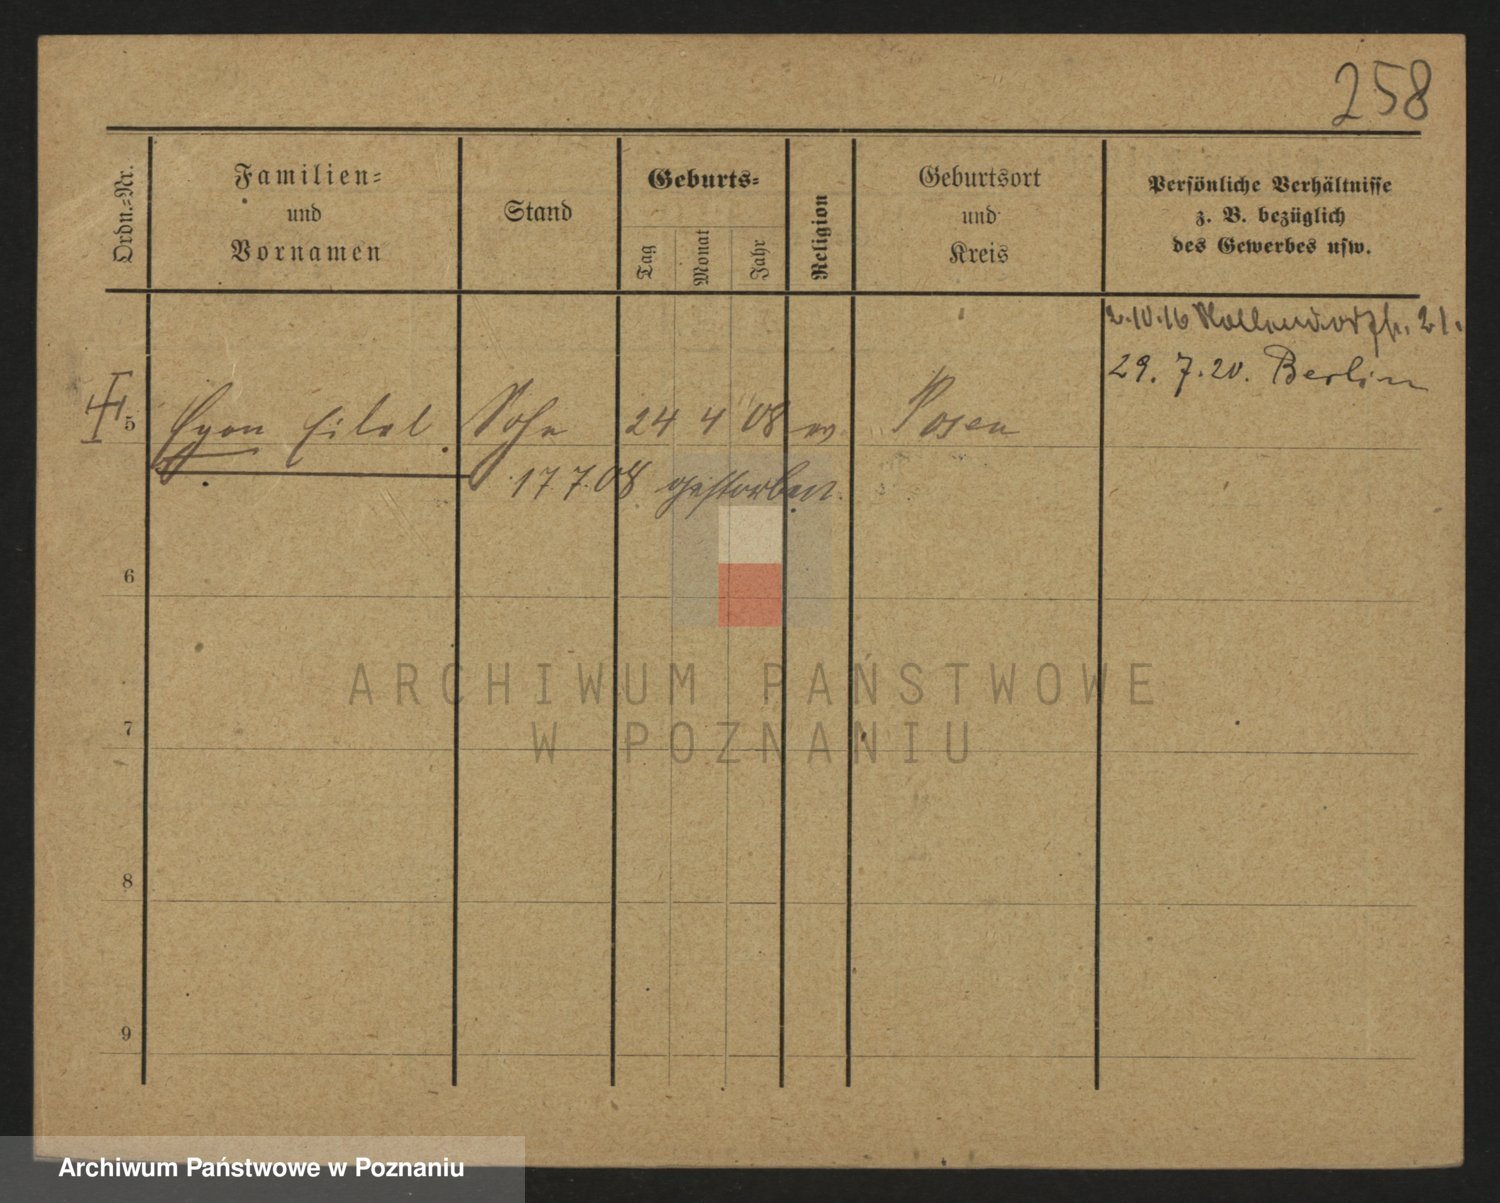 258
Ordn.=Nr.
Familien=
und
Vornamen
Stand
Geburts=
Tag
Monat
Jahr
Religion
Geburtsort
und
Kreis
Persönliche Verhältnisse
z. B. bezüglich
des Gewerbes usw.
2.10.16 21.
29.7.20. Berlin
5 Egon Sohn 24 4 08 Posen
17 7 08 gestorben.
6
7
8
9
ARCHIWUM PAŃSTWOWE
W POZNANIU
Archiwum Państwowe w Poznaniu